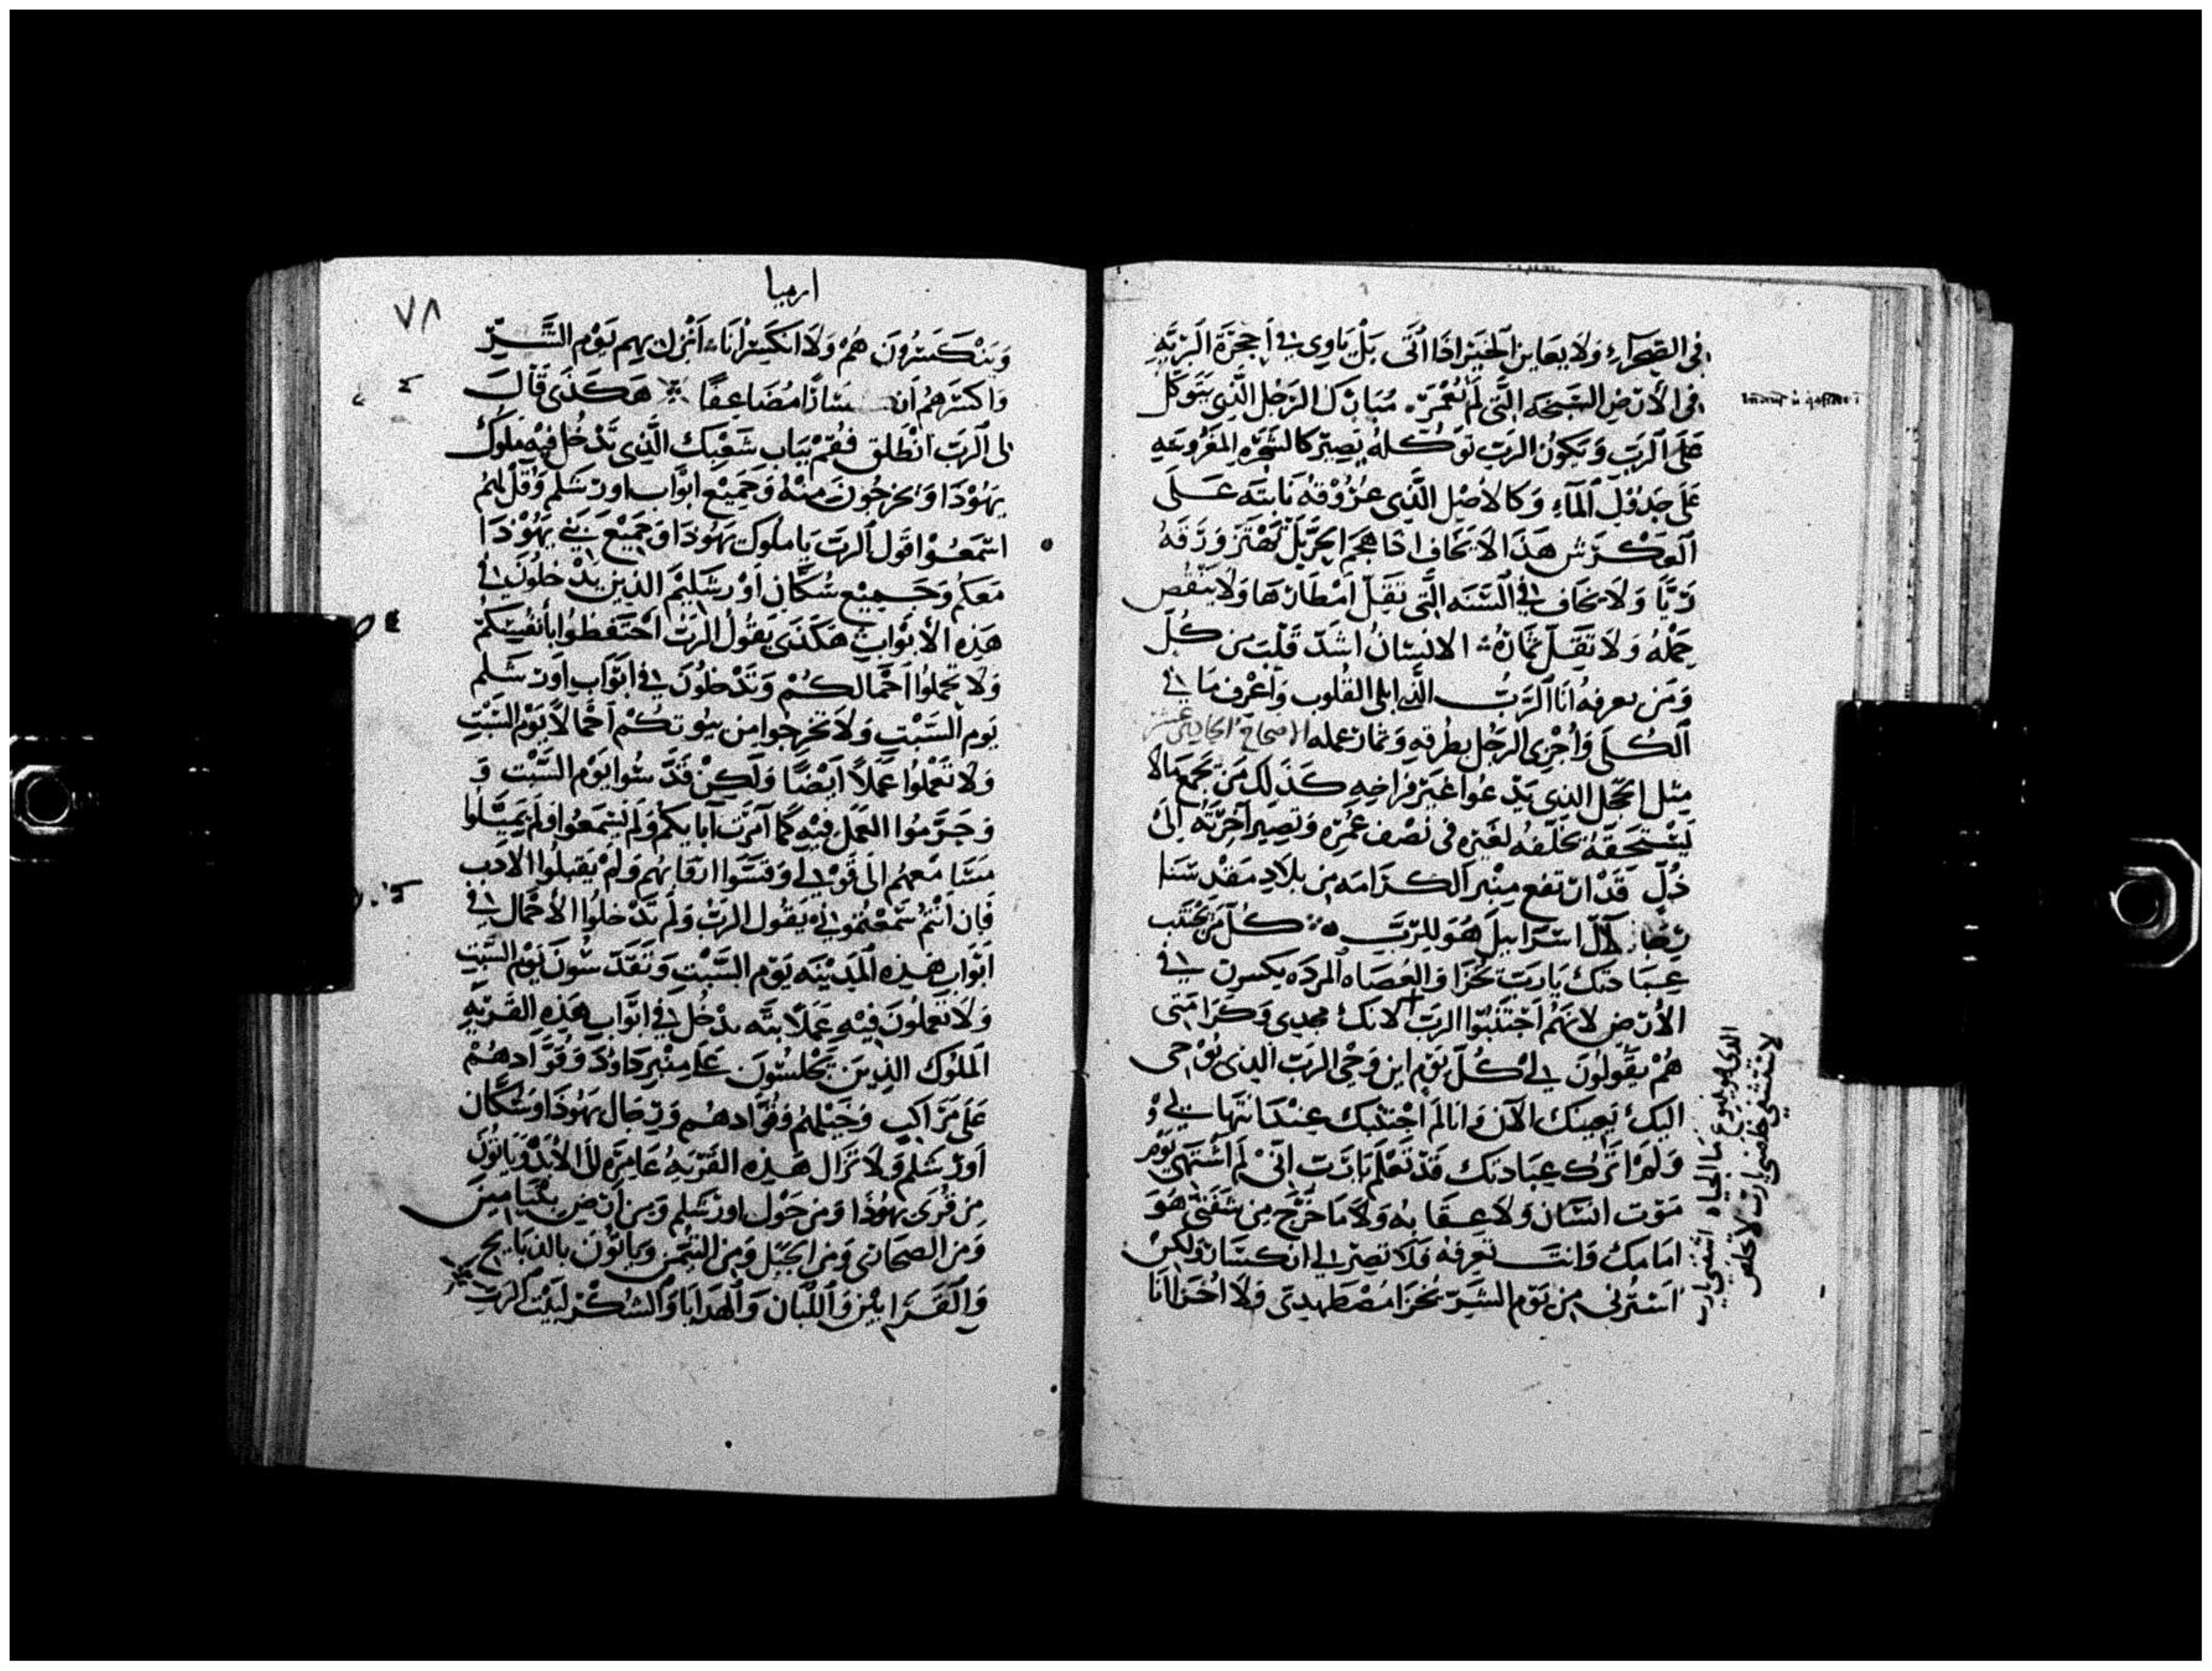 في الصحراء ولا يعاين الخير اذا اتى بل ياوي في احجرة البرية
في الأرض السبخه التى لم تعمر مبارك الرجل الذي يتوكل
على الرب ويكون الرب توكله يصير كالشجره المغروسه
على جدول المآء وكالاصل الذي عروقه نابته على
العكرش هذا لا يخاف اذا هجم الحر بل تهتز ورقه
ريًا ولا يخاف في السنه التى تقل امطارها ولا ينقص
حمله ولا تقل ثماره الانسان اشد قلب من كل
ومن يعرفه انا الرب الذي ابلي القلوب واعرف ما في
الكلى واجزي الرجل بطرقه وثمار عمله الاصحاح الحادي عشر
مثل الحجل الذي يدعوا غير فراخه كذلك من يجمع مالا
يستحقه يخلفه لغيره في نصف عمره وتصير آخرته الى
ذل قد ارتفع منبر الكرامه من بلاد مقدسنا
آل اسراييل هو للرب كل من يجتنب
عبادتك يارب يخزا والعصاه المرده يكسرن في
الأرض لانهم اجتنبوا الرب لانك مجدي وكرامتى
هم يقولون لي كل يوم اين وحى الرب الذي يوحى
اليك بعينك الآن وانا لم اجتنبك عند انتهايي
ولم اترك عبادتك قد تعلم يارب اني لم اشتهي يوم
موت انسان ولا عقابه ولا ما خرج من شفتى هو
امامك وانت تعرفه فلا تصر لي انكسارا ولكن
استرني من يوم الشر يخزا مضطهدي ولا اخزا انا
الذي هو ينبوع ما الحياه اشفنى يارب
لاشتفي خلصنى يارب لاخلص
ارميا
٧٨
وينكسرون هم ولا انكسر انا انزل بهم يوم الشر
واكسرهم انكسارًا مضاعفًا هكذى قال
لي الرب انطلق فقم بباب شعبك الذي تدخل فيه ملوك
يهوذا ويخرجون منه وجميع ابواب اورشلم وقل لهم
استمعوا قول الرب يا ملوك يهوذا وجميع بني يهوذا
معكم وجميع سكان اورشليم الذين يدخلون في
هذه الأبواب هكذى يقول الرب احتفظوا بأنفسكم
ولا تحملوا احمالكم وتدخلون في ابواب اورشلم
يوم السبت ولا تخرجوا من بيوتكم احمالا يوم السبت
ولا تعملوا عملاً ايضًا ولكن قدسوا يوم السبت و
وحرموا العمل فيه كما آمرت آبايكم ولم يسمعوا ولم يميلوا
مسامعهم الى قولي وقسوا ارقابهم ولم يقبلوا الادب
فان انتم سمعتموني يقول الرب ولم تدخلوا الأحمال في
ابواب هذه المدينه يوم السبت وتقدسون يوم السبت
ولا تعملون فيه عملا بته يدخل في ابواب هذه القريه
الملوك الذين يجلسون على منبر داود وقوادهم
على مراكب وخيلهم وقوادهم ورجال يهوذا وسكان
اورشلم ولا تزال هذه القريه عامره الى الابد وياتون
من قرى يهوذا ومن حول اورشلم ومن ارض بنيامين
ومن الصحارى ومن الجبل ومن التيمن وياتون بالذبايح
والقرابين واللبان والهدايا والشكر لبيت الرب